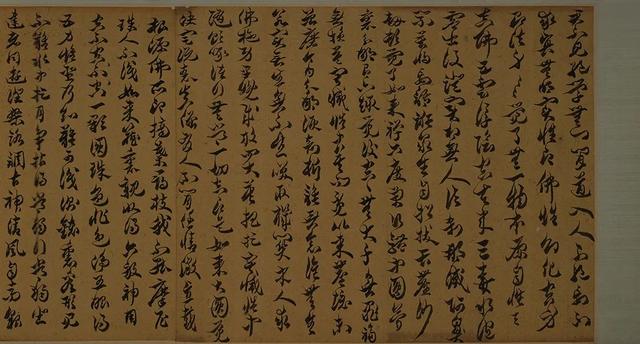 君不見絕學無為閒道人不除妄想不
求真無明實性即佛性幻化空身
即法身法身覺了無一物本源自性天
真佛五陰浮雲空去來三毒水泡
虛出沒證實相無人法剎那滅卻阿鼻
業若將妄語誑眾生自招拔舌塵沙
劫頓覺了如來禪六度萬行體中圓夢
裏明明有六趣覺後空空無大千無罪福
無損益寂滅性中莫問覓比來塵鏡未
曾磨今日分明須剖析誰無念誰無生
若實無生無不生喚取機關木人問求
佛施功早晚成放四大莫把捉寂滅性中
隨飲啄諸行無常一切空即是如來大圓覺
決定說表真僧有人不肯任情徵直截
根源佛所印摘葉尋枝我不能摩尼
珠人不識如來藏裏親收得六般神用
空不空一顆圓珠色非色淨五眼得
五力唯證乃知難可測鏡裏看形見
不難水中捉月爭拈得常獨行常獨步
達者同遊涅槃路調古神清風自高貌